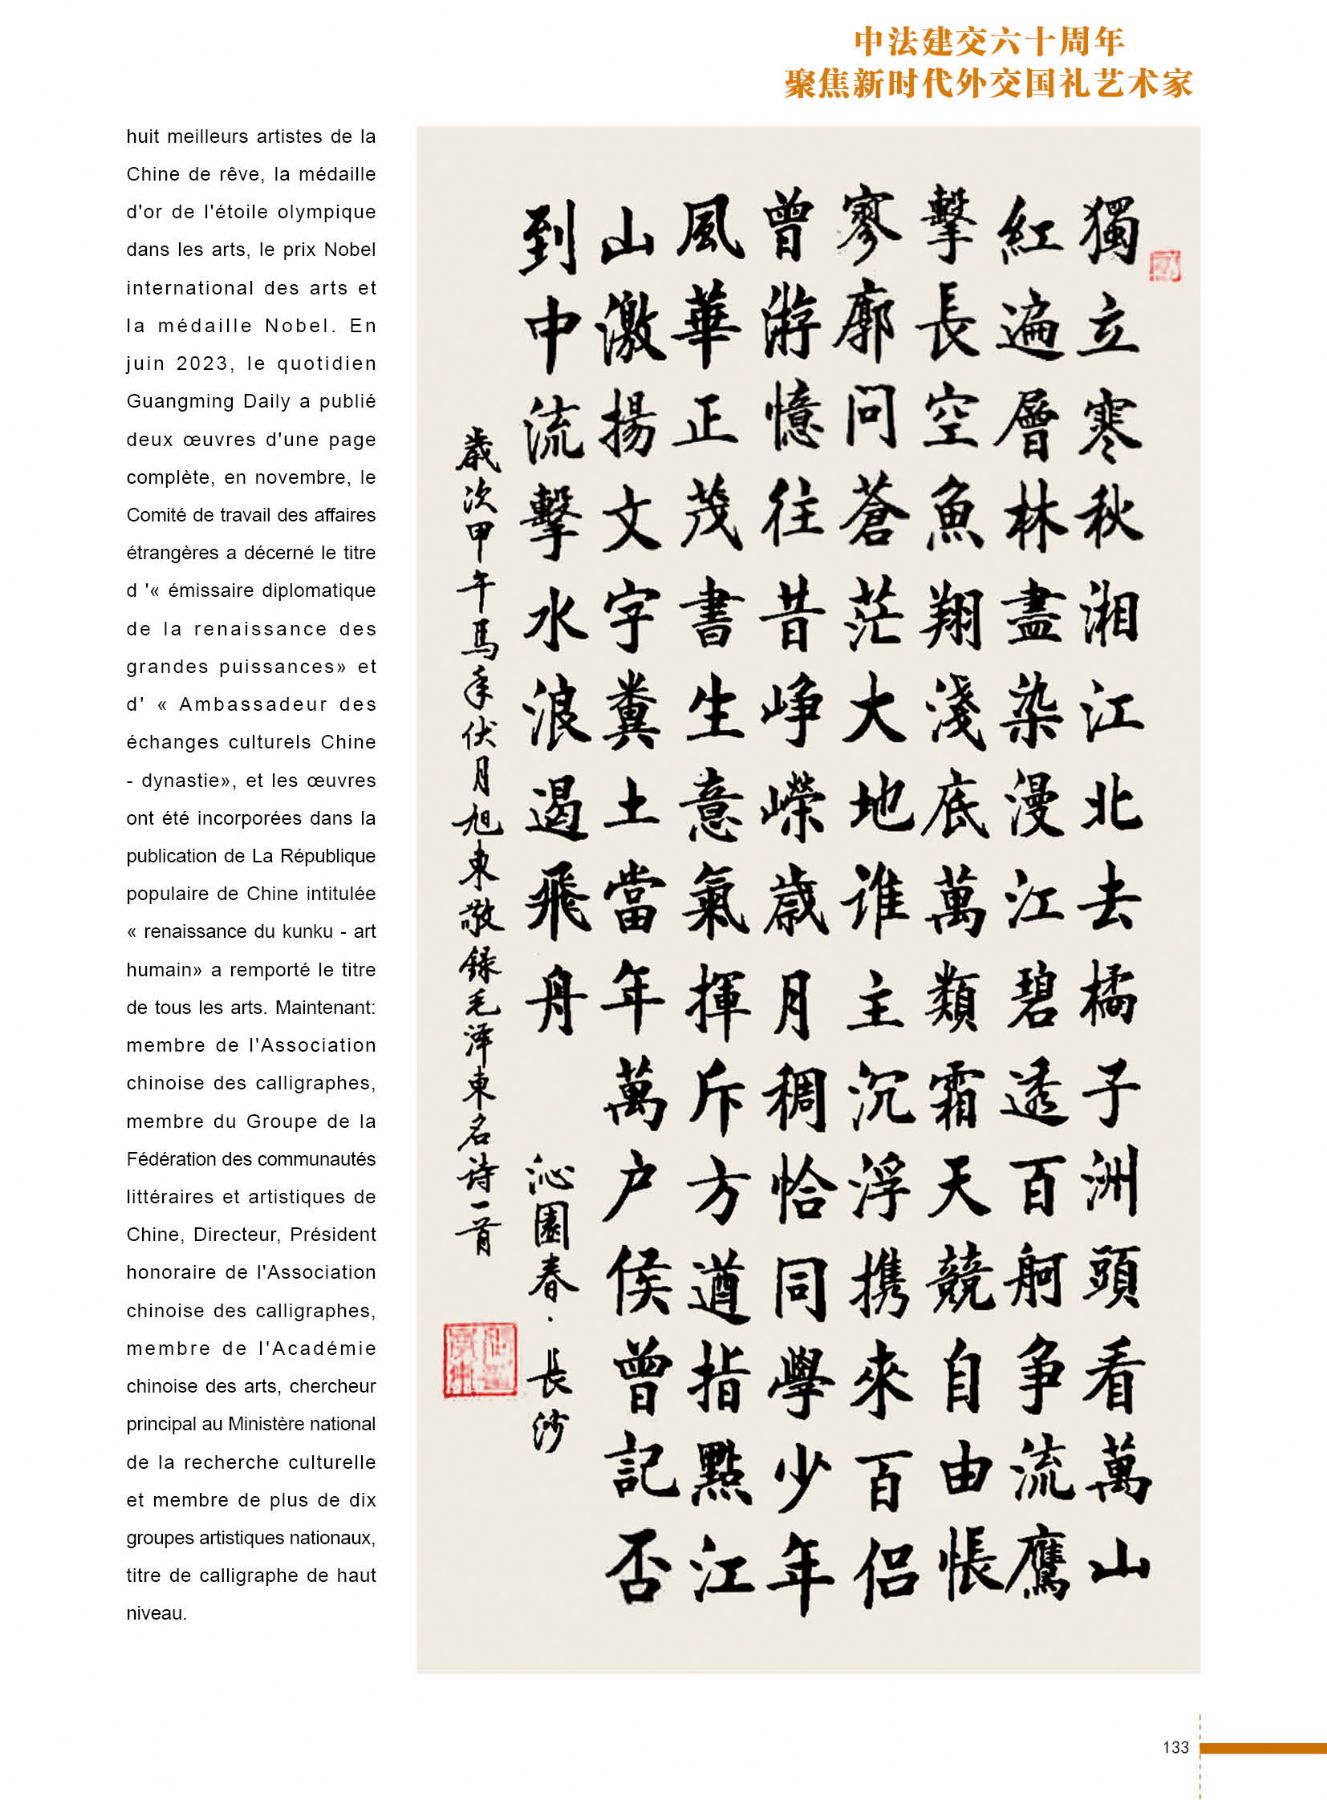 中法建交六十周年
聚焦新时代外交国礼艺术家
huit meilleurs artistes de la
Chine de rêve, la médaille
d'or de l'étoile olympique
dans les arts, le prix Nobel
international des arts et
la médaille Nobel. En
juin 2023, le quotidien
Guangming Daily a publié
deux œuvres d'une page
complète, en novembre, le
Comité de travail des affaires
étrangères a décerné le titre
d '« émissaire diplomatique
de la renaissance des
grandes puissances» et
d' « Ambassadeur des
échanges culturels Chine
- dynastie», et les œuvres
ont été incorporées dans la
publication de La République
populaire de Chine intitulée
« renaissance du kunku - art
humain» a remporté le titre
de tous les arts. Maintenant:
membre de l'Association
chinoise des calligraphes,
membre du Groupe de la
Fédération des communautés
littéraires et artistiques de
Chine, Directeur, Président
honoraire de l'Association
chinoise des calligraphes,
membre de l'Académie
chinoise des arts, chercheur
principal au Ministère national
de la recherche culturelle
et membre de plus de dix
groupes artistiques nationaux,
titre de calligraphe de haut
niveau.
獨立寒秋湘江北去橘子洲頭看萬山
紅遍層林盡染漫江碧透百舸争流鷹
擊長空魚翔淺底萬類霜天競自由悵
寥廓问蒼茫大地谁主沉浮携來百侣
曾游憶往昔峥嶸歲月稠恰同學少年
風華正茂書生意氣揮斥方遒指點江
山激揚文字糞土當年萬户侯曾記否
到中流擊水浪遏飛舟
沁園春·長沙
歲次甲午馬年伏月旭東敬録毛泽東名诗一首
133